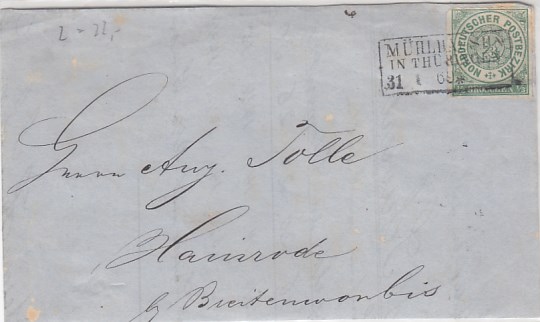 2 - 22,-
MÜHLH
IN THÜR
31 1 69
NORDDEUTSCHER POSTBEZIRK
Herrn Aug. Tolle
Hainrode
b/ Breitenworbis